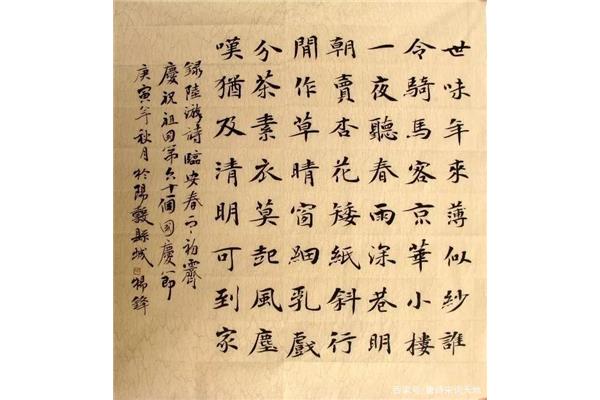 世味年來薄似紗誰
令騎馬客京華小樓
一夜聽春雨深巷明
朝賣杏花矮紙斜行
閒作草晴窗細乳戲
分茶素衣莫起風塵
嘆猶及清明可到家
錄陸游詩臨安春雨初霽
慶祝祖国第六十個國慶節
庚寅年秋月於陽穀縣城 楊鋒
百家号/唐诗宋词天地